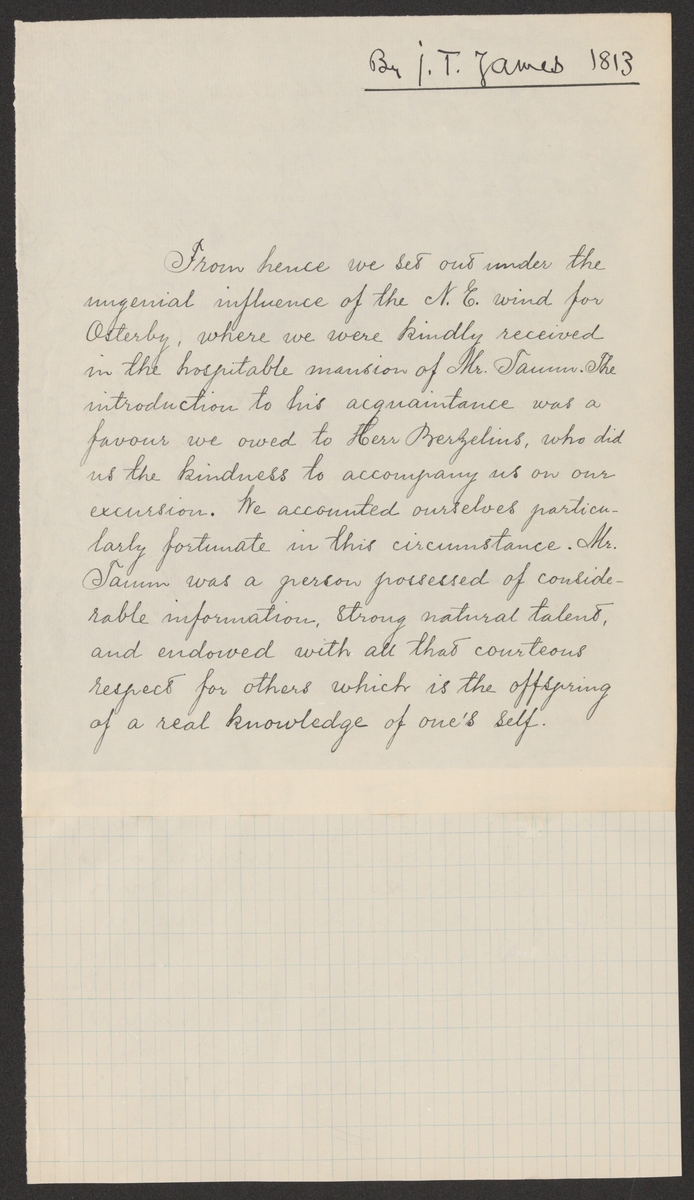 By J. T. James 1813
From hence we set out under the
ungenial influence of the N. E. wind for
Osterby, where we were kindly received
in the hospitable mansion of Mr. Tamm. The
introduction to his acquaintance was a
favour we owed to Herr Berzelius, who did
us the kindness to accompany us on our
excursion. We accounted ourselves particu-
larly fortunate in this circumstance. Mr.
Tamm was a person possessed of conside-
rable information, strong natural talent,
and endowed with all that courteous
respect for others which is the offspring
of a real knowledge of one's self.